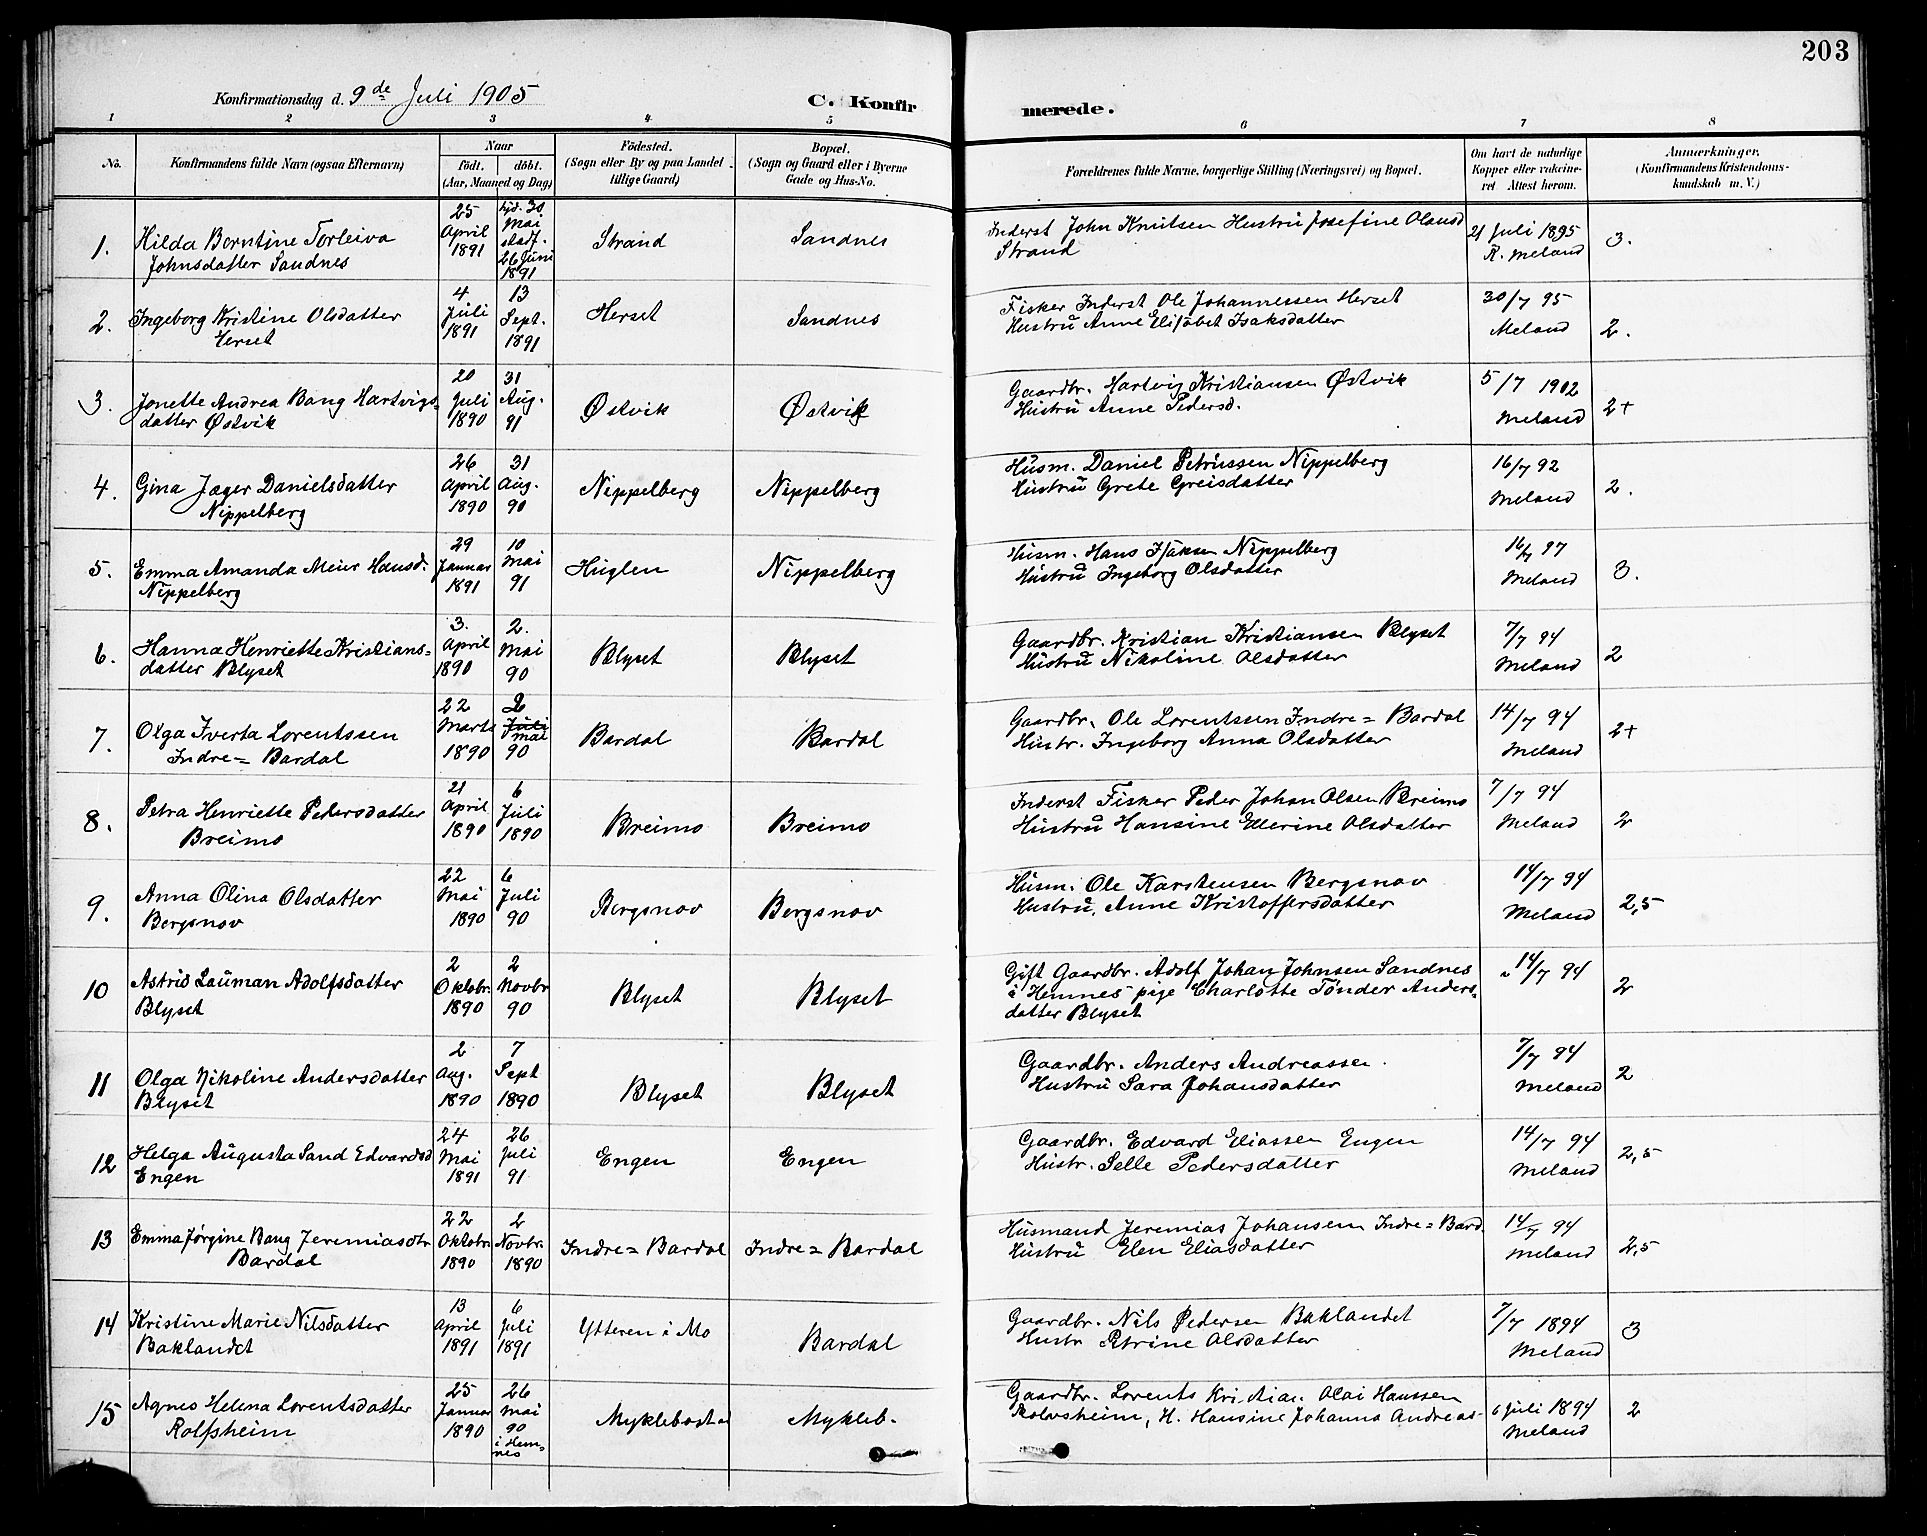 203
Konfirmationsdag d. 9de Juli 1905
C. Konfirmerede.
1 2 3 4 5 6 7 8
No.
Konfirmandens fulde Navn (ogsaa Efternavn)
Naar
født. döbt.
(Aar, Maaned og Dag)
Födested.
(Sogn eller By og paa Landet
tillige Gaard)
Bopæl.
(Sogn og Gaard eller i Byerne
Gade og Hus-No.
Forældrenes fulde Navne, borgerlige Stilling (Næringsvei) og Bopæl.
Om havt de naturlige
Kopper eller vakcine-
ret Attest herom.
Anmærkninger.
(Konfirmandens Kristendoms-
kundskab m. V.)
1. Hilda Berntine Torleiva
Johnsdatter Sandnes
25
April
1891
hjd. 30
Mai
stadf.
26 Juni
1891
Strand
Sandnes
Inderst John Knutsen Hustru Josefine Olausd
Strand
21 Juli 1895
R. Meland
3.
2. Ingeborg Kristine Olsdatter
Herset
4
Juli
1891
13
Sept.
1891
Herset
Sandnes
Fisker Inderst Ole Johannessen Herset
Hustru Anne Elisabet Isaksdatter
30/7 95
Meland
2.
3. Jonette Andrea Bang Hartvigs-
datter Østvik
20
Juli
1890
31
Aug.
91
Østvik
Østvik
Gaardbr. Hartvig Kristiansen Østvik
Hustru Anne Pedersd.
5/7 1902
Meland
2+
4. Gina Jæger Danielsdatter
Nippelberg
26
April
1890
31
Aug.
90
Nippelberg
Nippelberg
Husm. Daniel Petrussen Nippelberg
Hustru Grete Greisdatter
16/7 92
Meland
2.
5. Emma Amanda Meier Hansd.
Nippelberg
29
Januar
1891
10
Mai
91
Huglen
Nippelberg
Husm. Hans Isaksen Nippelberg
Hustru Ingeborg Olsdatter
16/7 97
Meland
3.
6. Hanna Henriette Kristians=
datter Blyset
3.
April
1890
2.
Mai
90
Blyset
Blyset
Gaardbr. Kristian Kristiansen Blyset
Hustru Nikoline Olsdatter
7/7 94
Meland
2
7. Olga Iverta Lorentssen
Indre= Bardal
22
Marts
1890
2
Juli
mai
90
Bardal
Bardal
Gaardbr. Ole Lorentssen Indre= Bardal
Hustr. Ingeborg Anna Olsdatter
14/7 94
Meland
2+
8. Petra Henriette Pedersdatter
Breimo
21
April
1890
6
Juli
1890
Breimo
Breimo
Inderst Fisker Peder Johan Olsen Breimo
Hustru Hansine Ellerine Olsdatter
7/7 94
Meland
2
9. Anna Olina Olsdatter
Bergsnov
22
Mai
1890
6
Juli
90
Bergsnov
Bergsnov
Husm. Ole Karstensen Bergsnov
Hustru. Anne Kristoffersdatter
14/7 94
Meland
2,5
10 Astrid Lauman Adolfsdatter
Blyset
2
Oktobr.
1890
2
Novbr
90
Blyset
Blyset
Gift Gaardbr. Adolf Johan Johnsen Sandnes
i Hemnes pige Charlotte Tønder Anders-
datter Blyset
" 14/7 94
2
11 Olga Nikoline Andersdatter
Blyset
2
Aug.
1890
7
Sept
1890
Blyset
Blyset
Gaardbr. Anders Andreassen
Hustru Sara Johansdatter
7/7 94
Meland
2
12 Helga Augusta Sand Edvardsd
Engen
24
Mai
1891
26
Juli
91
Engen
Engen
Gaardbr. Edvard Eliassen Engen
Hustr. Selle Pedersdatter
14/7 94
Meland
2,5
13 Emma Jørgine Bang Jeremiasdtr
Bardal
22
Oktobr.
1890
2
Novbr.
1890
Indre= Bardal
Indre= Bardal
Husmand Jeremias Johansen Indre= Bard.
Hustru Elen Eliasdatter
14/7 94
Meland
2,5
14 Kristine Marie Nilsdatter
Baklandet
13
April
1891
6
Juli
1891
Ytteren i Mo
Bardal
Gaardbr. Nils Pedersen Baklandet
Hustr Petrine Olsdatter
7/7 1894
Meland
3
15 Agnes Helena Lorentsdatter
Rolfsheim
25
Januar
1890
26
Mai
90
i Hem-
nes
Myklebostad
Mykleb.
Gaardbr. Lorents Kristian Olai Hanssen
H. Hansine Johanna Andreas-
6 Juli 1894
Meland
2